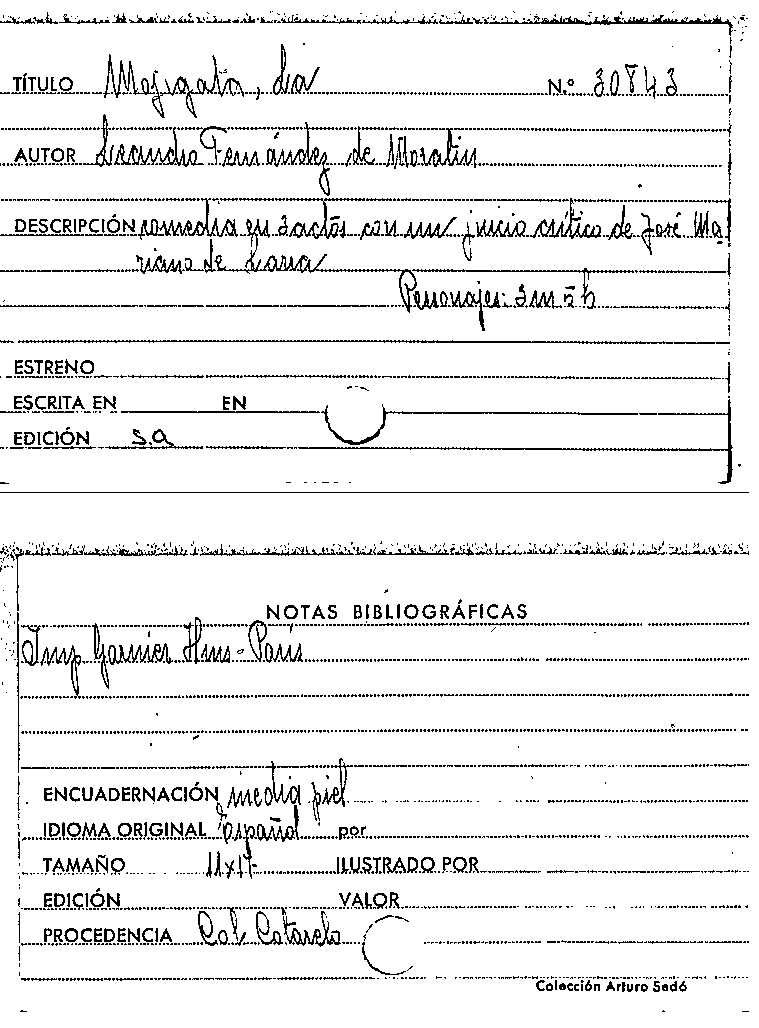 TÍTULO Mojigata, La N.º 30843
AUTOR Leandro Fernández de Moratin
DESCRIPCIÓN comedia en 3 actos con un juicio crítico de José Ma
riano de Larra
Personajes: 3 m 5 h
ESTRENO
ESCRITA EN EN
EDICIÓN S.a
NOTAS BIBLIOGRÁFICAS
Imp Garnier Hnos - París
ENCUADERNACIÓN media piel
IDIOMA ORIGINAL español por
TAMAÑO 11x17 ILUSTRADO POR
EDICIÓN VALOR
PROCEDENCIA Col. Cotarelo
Colección Arturo Sedó